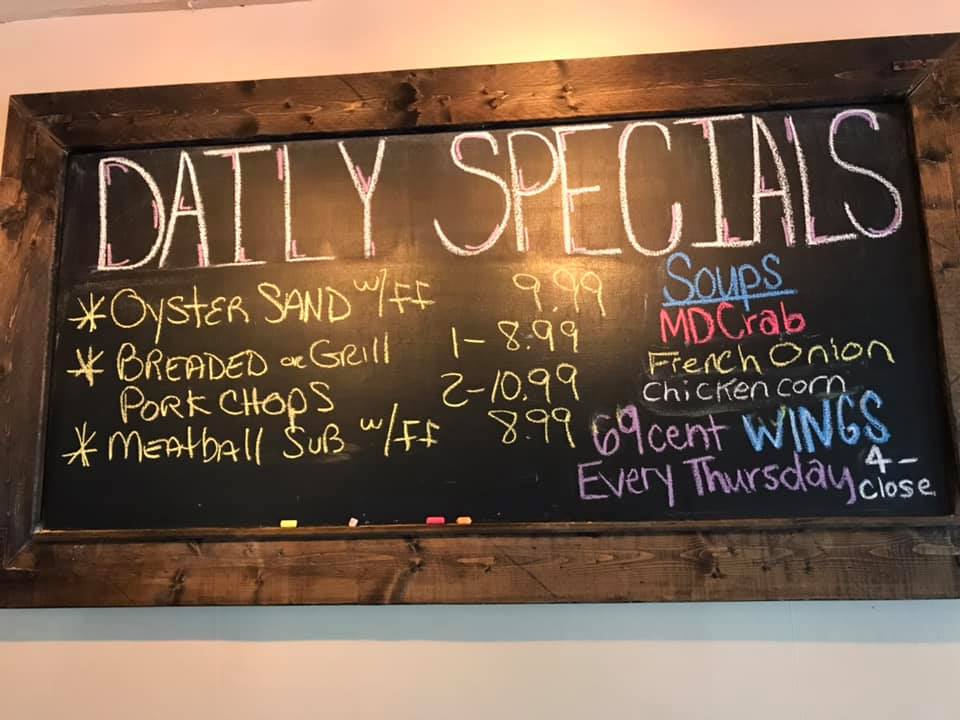 DAILY SPECIALS
* OYSTER SAND w/ff 9.99
* BREADED or Grill 1-8.99
PORK CHOPS 2-10.99
* MEATball SUB w/ff 8.99
Soups
MD Crab
French Onion
Chicken corn
69 cent WINGS
Every Thursday 4-close